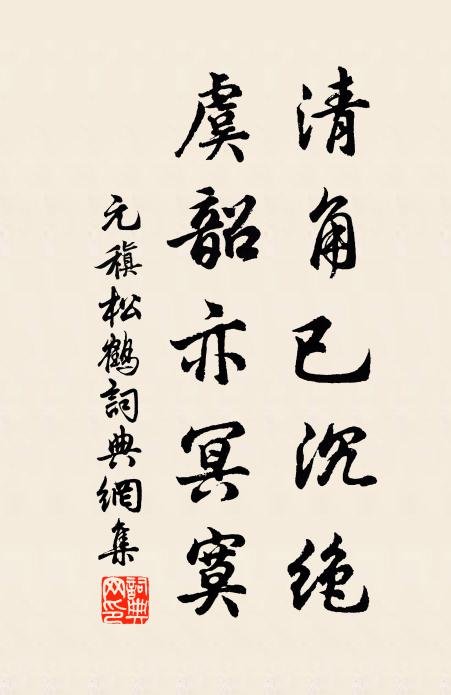 清角已沉絶
虞韶亦冥寞
元稹松鶴詞典網集
詞典網印